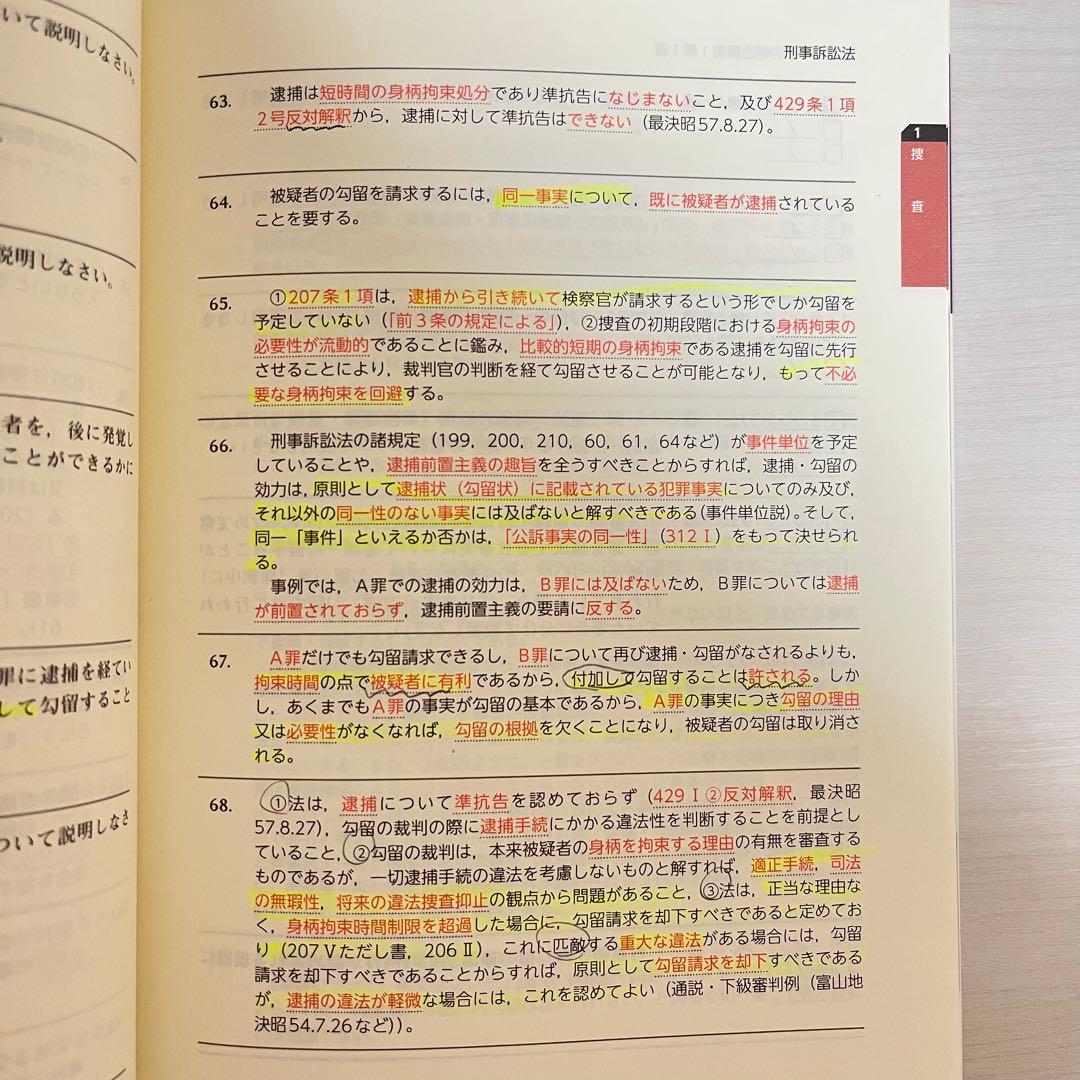 いて説明しなさい。
説明しなさい。
者を，後に発覚し
ことができるかに
罪に逮捕を経てい
して勾留すること
ついて説明しなさ
刑事訴訟法
1
捜
査
63. 逮捕は短時間の身柄拘束処分であり準抗告になじまないこと，及び429条1項
2号反対解釈から，逮捕に対して準抗告はできない（最決昭57.8.27）。
64. 被疑者の勾留を請求するには，同一事実について，既に被疑者が逮捕されている
ことを要する。
65. ①207条1項は，逮捕から引き続いて検察官が請求するという形でしか勾留を
予定していない（「前3条の規定による」），②捜査の初期段階における身柄拘束の
必要性が流動的であることに鑑み，比較的短期の身柄拘束である逮捕を勾留に先行
させることにより，裁判官の判断を経て勾留させることが可能となり，もって不必
要な身柄拘束を回避する。
66. 刑事訴訟法の諸規定（199，200，210，60，61，64など）が事件単位を予定
していることや，逮捕前置主義の趣旨を全うすべきことからすれば，逮捕・勾留の
効力は，原則として逮捕状（勾留状）に記載されている犯罪事実についてのみ及び，
それ以外の同一性のない事実には及ばないと解すべきである（事件単位説）。そして，
同一「事件」といえるか否かは，「公訴事実の同一性」（312Ⅰ）をもって決せられ
る。
事例では，A罪での逮捕の効力は，B罪には及ばないため，B罪については逮捕
が前置されておらず，逮捕前置主義の要請に反する。
67. A罪だけでも勾留請求できるし，B罪について再び逮捕・勾留がなされるよりも，
拘束時間の点で被疑者に有利であるから，付加して勾留することは許される。しか
し，あくまでもA罪の事実が勾留の基本であるから，A罪の事実につき勾留の理由
又は必要性がなくなれば，勾留の根拠を欠くことになり，被疑者の勾留は取り消さ
れる。
68. ①法は，逮捕について準抗告を認めておらず（429Ⅰ②反対解釈，最決昭
57.8.27），勾留の裁判の際に逮捕手続にかかる違法性を判断することを前提とし
ていること，②勾留の裁判は，本来被疑者の身柄を拘束する理由の有無を審査する
ものであるが，一切逮捕手続の違法を考慮しないものと解すれば，適正手続，司法
の無瑕性，将来の違法捜査抑止の観点から問題があること，③法は，正当な理由な
く，身柄拘束時間制限を超過した場合に，勾留請求を却下すべきであると定めてお
り（207Ⅴただし書，206Ⅱ），これに匹敵する重大な違法がある場合には，勾留
請求を却下すべきであることからすれば，原則として勾留請求を却下すべきである
が，逮捕の違法が軽微な場合には，これを認めてよい（通説・下級審判例（富山地
決昭54.7.26など））。